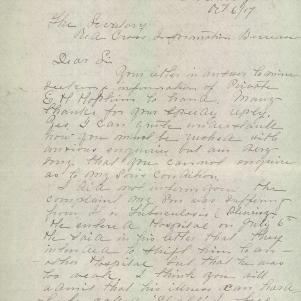 Oct 6/17
The Secretary
Red Cross Information Bureau
Dear Sir
Your letter in answer to mine
seeking information of Private
E H Hopkins to hand. Many
thanks for your speedy reply,
yes I can quite understand
how you must be rushed with
anxious enquiries but am very
sorry that you cannot enquire
as to my Sons condition.
I did not inform you the
complaint my Son was suffering
from it is Tuberculosis & Pleurisy
He entered Hospital on July 6th
He said in his letter that they
intended to shift him to an-
other Hospital but that he was
too weak, I think you will
admit that his illness can hard